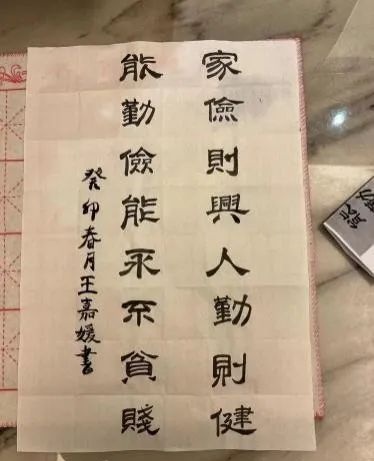 家儉則興人勤則健
能勤儉能永不貧賤
癸卯春月王嘉媛書